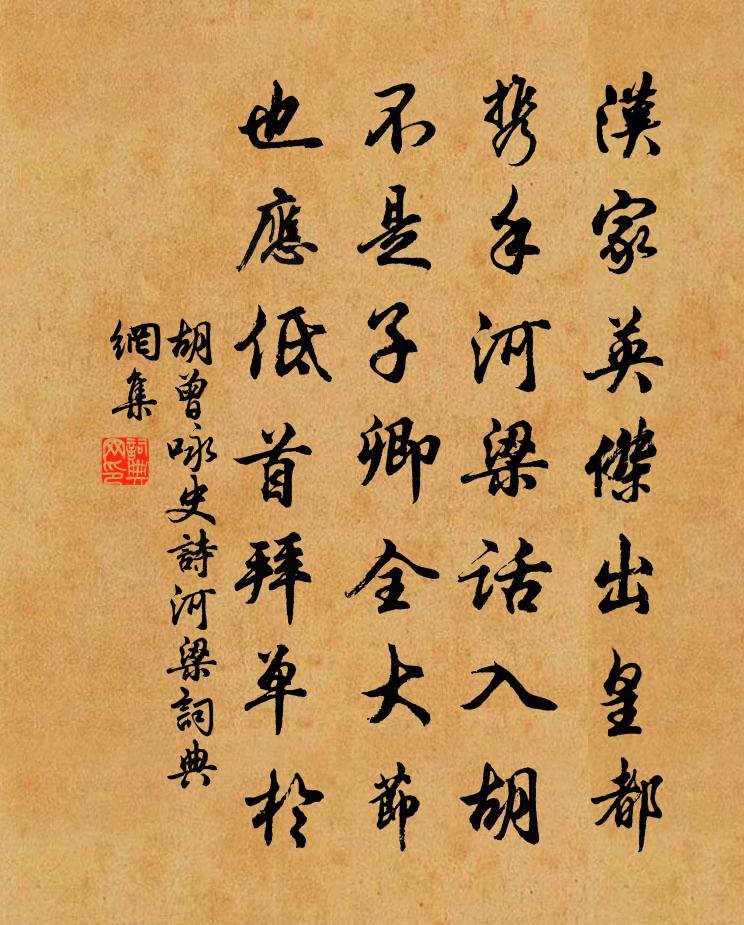 漢家英傑出皇都
携手河梁話入胡
不是子卿全大節
也應低首拜單於
胡曾咏史詩河梁詞典
網集
詞典網印